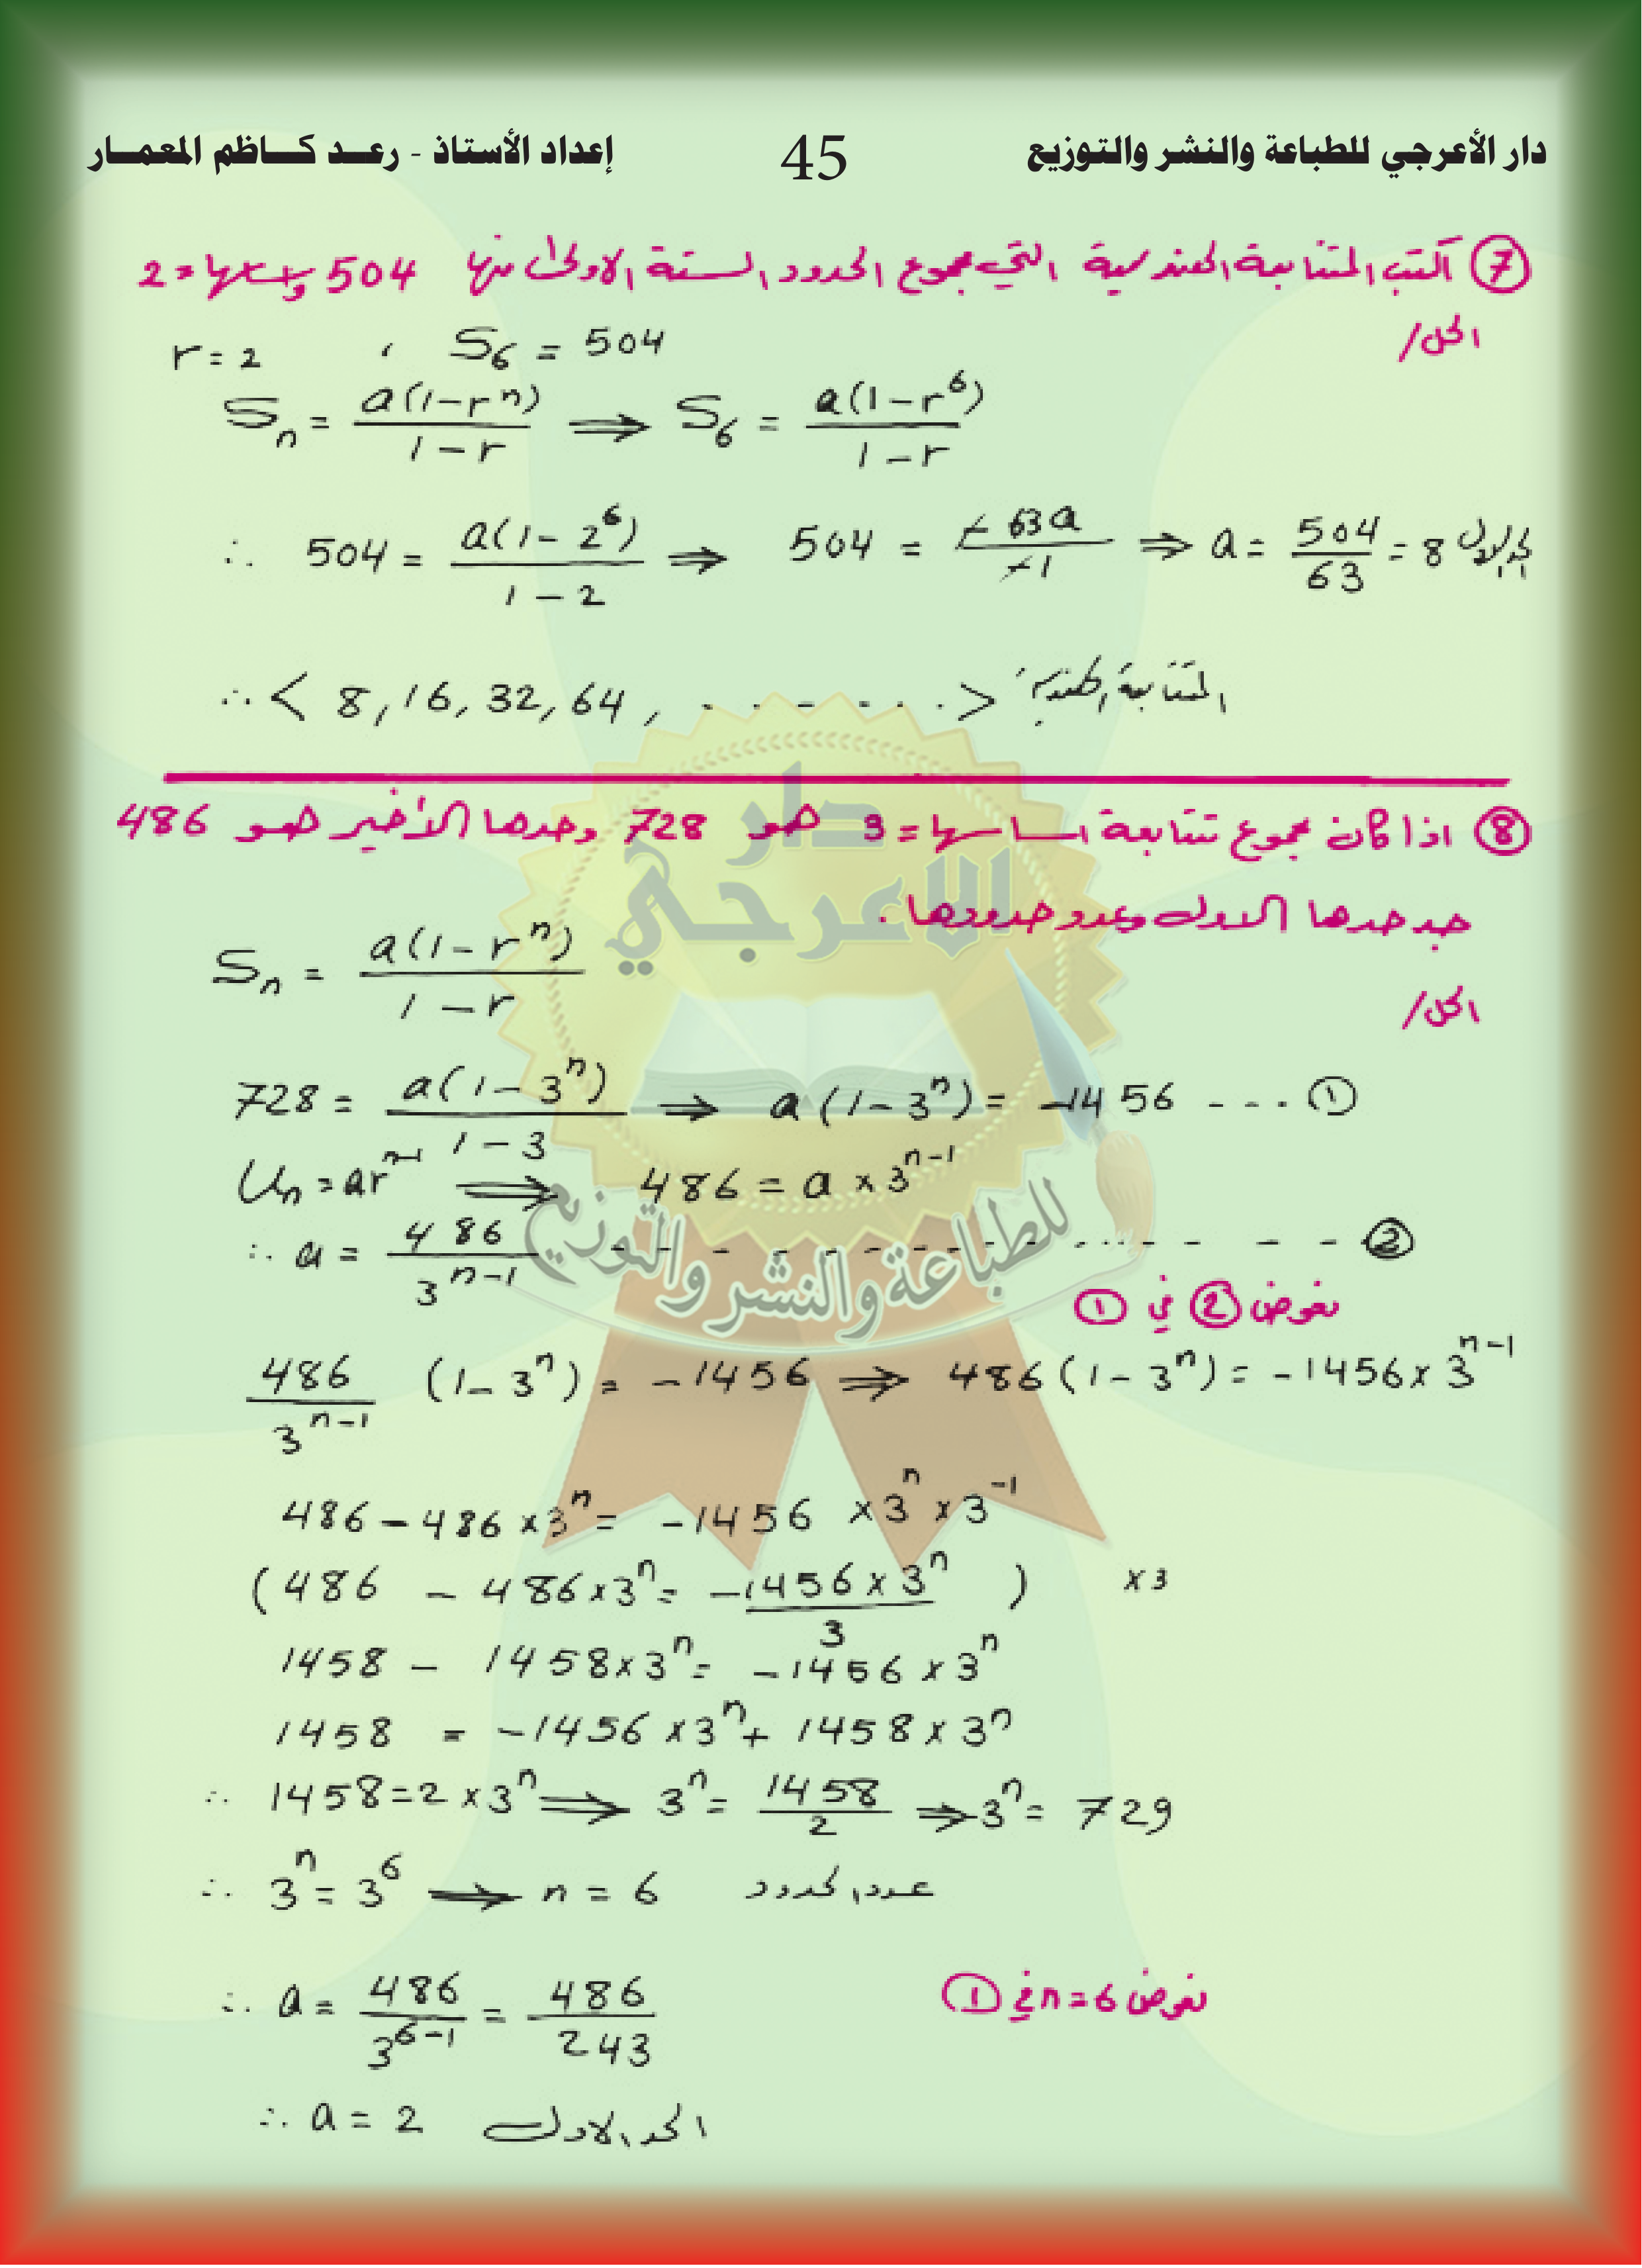 دار الأعرجي للطباعة والنشر والتوزيع 45 إعداد الأستاذ - رعد كاظم المعمار
⑦ اكتب المتتابعة الهندسية التي مجموع الحدود الستة الاولى منها 504 واساسها = 2
الحل /
r = 2 ، S₆ = 504
Sₙ = a(1-rⁿ)/(1-r) ⇒ S₆ = a(1-r⁶)/(1-r)
∴ 504 = a(1-2⁶)/(1-2) ⇒ 504 = -63a/-1 ⇒ a = 504/63 = 8 الحد الاول
∴ < 8, 16, 32, 64, ....... > المتتابعة الهندسية
⑧ اذا كان مجموع متتابعة اساسها = 3 هو 728 وحدها الاخير هو 486
جد حدها الاول وعدد حدودها .
الحل /
Sₙ = a(1-rⁿ)/(1-r)
728 = a(1-3ⁿ)/(1-3) ⇒ a(1-3ⁿ) = -1456 ... ①
Uₙ = arⁿ⁻¹ ⇒ 486 = a × 3ⁿ⁻¹
∴ a = 486/3ⁿ⁻¹ - - - - - - - - - - - ②
نعوض ② في ①
486/3ⁿ⁻¹ (1-3ⁿ) = -1456 ⇒ 486(1-3ⁿ) = -1456 × 3ⁿ⁻¹
486 - 486 × 3ⁿ = -1456 × 3ⁿ × 3⁻¹
(486 - 486 × 3ⁿ = -1456 × 3ⁿ/3) × 3
1458 - 1458 × 3ⁿ = -1456 × 3ⁿ
1458 = -1456 × 3ⁿ + 1458 × 3ⁿ
∴ 1458 = 2 × 3ⁿ ⇒ 3ⁿ = 1458/2 ⇒ 3ⁿ = 729
∴ 3ⁿ = 3⁶ → n = 6 عدد الحدود
نعوض n = 6 في ①
∴ a = 486/3⁶⁻¹ = 486/243
∴ a = 2 الحد الاول
دار
الاعرجي
للطباعة والنشر والتوزيع